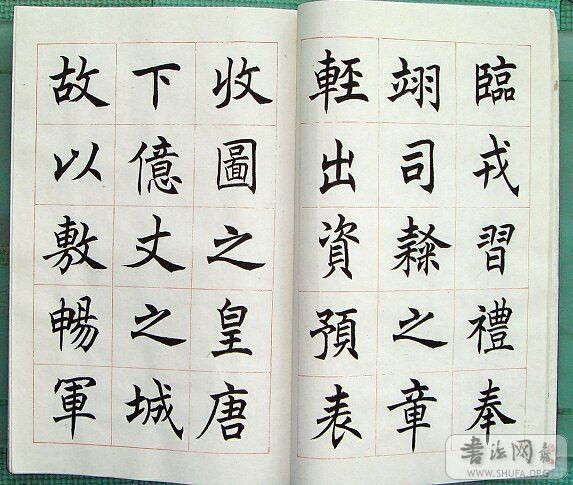 臨戎習禮奉
翊司隸之章
輊出資預表
收圖之皇唐
下億丈之城
故以敷暢軍
书法网
WWW.SHUFA.ORG